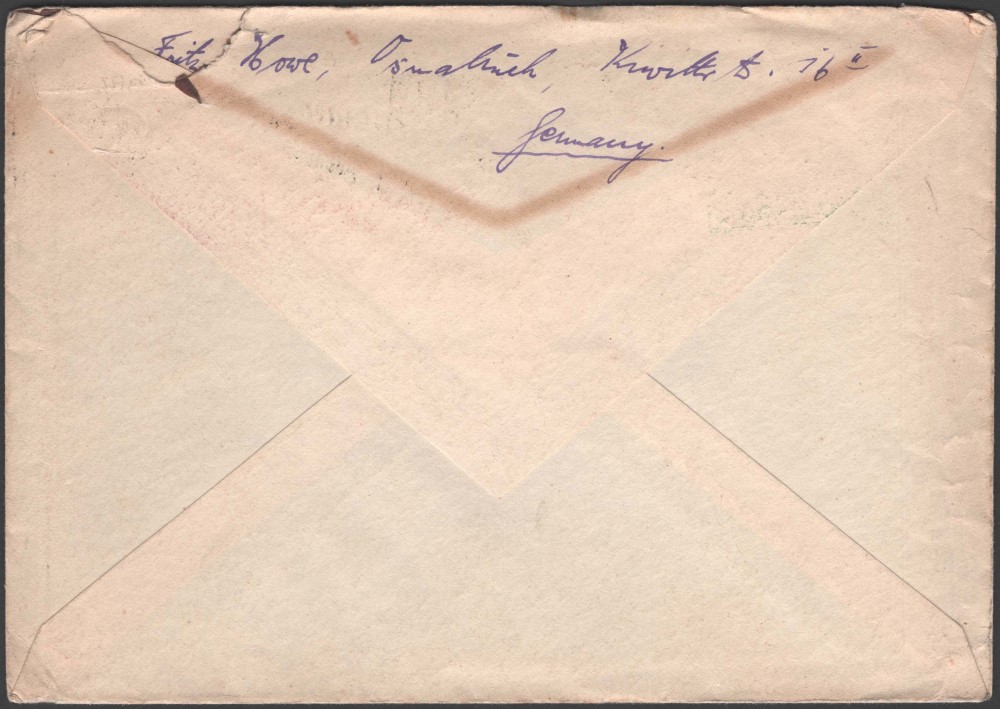 Fritz Howe, Osnabrück, Kiwittstr. 16 II
Germany.